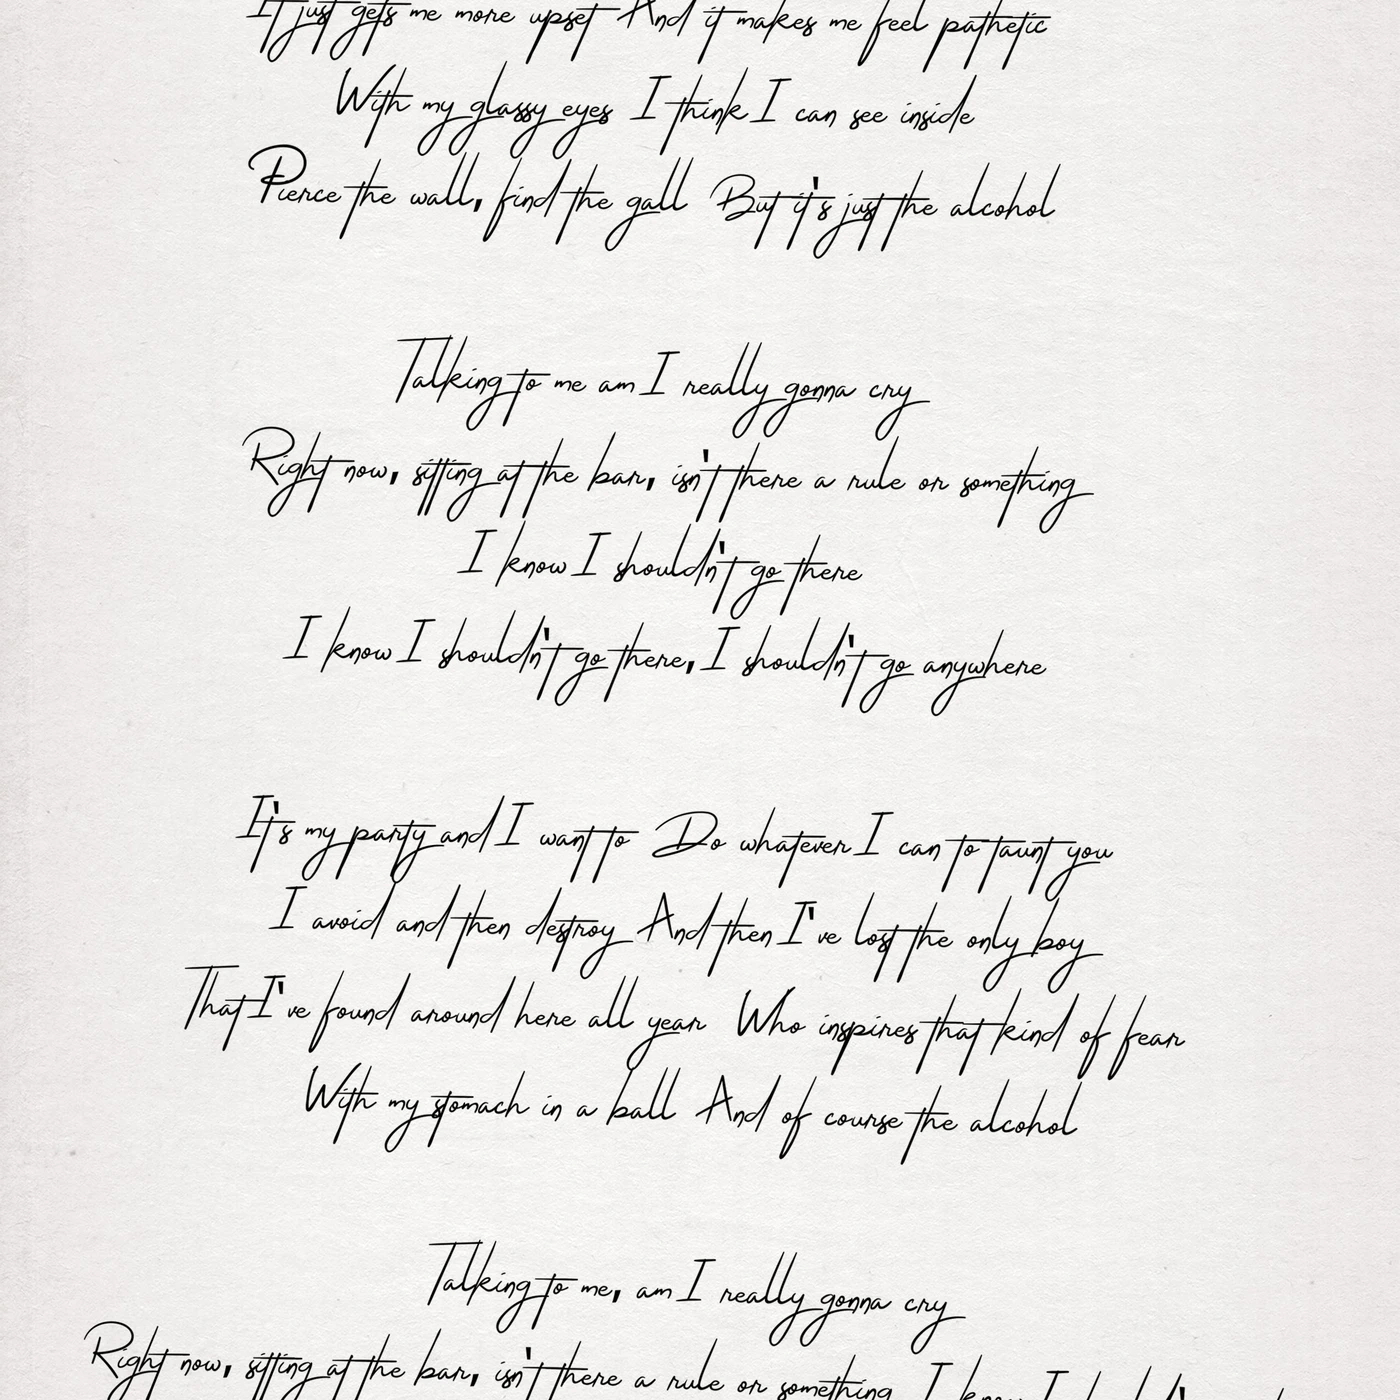 It just gets me more upset And it makes me feel pathetic
With my glassy eyes I think I can see inside
Pierce the wall, find the gall But it's just the alcohol
Talking to me am I really gonna cry
Right now, sitting at the bar, isn't there a rule or something
I know I shouldn't go there
I know I shouldn't go there, I shouldn't go anywhere
It's my party and I want to Do whatever I can to taunt you
I avoid and then destroy And then I've lost the only boy
That I've found around here all year Who inspires that kind of fear
With my stomach in a ball And of course the alcohol
Talking to me, am I really gonna cry
Right now, sitting at the bar, isn't there a rule or something I know I